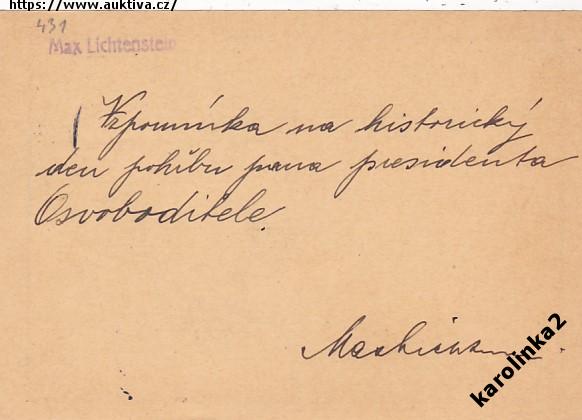 https://www.auktiva.cz/
431
Max Lichtenstein
Vzpomínka na historický
den pohřbu pana presidenta
Osvoboditele.
karolinka2